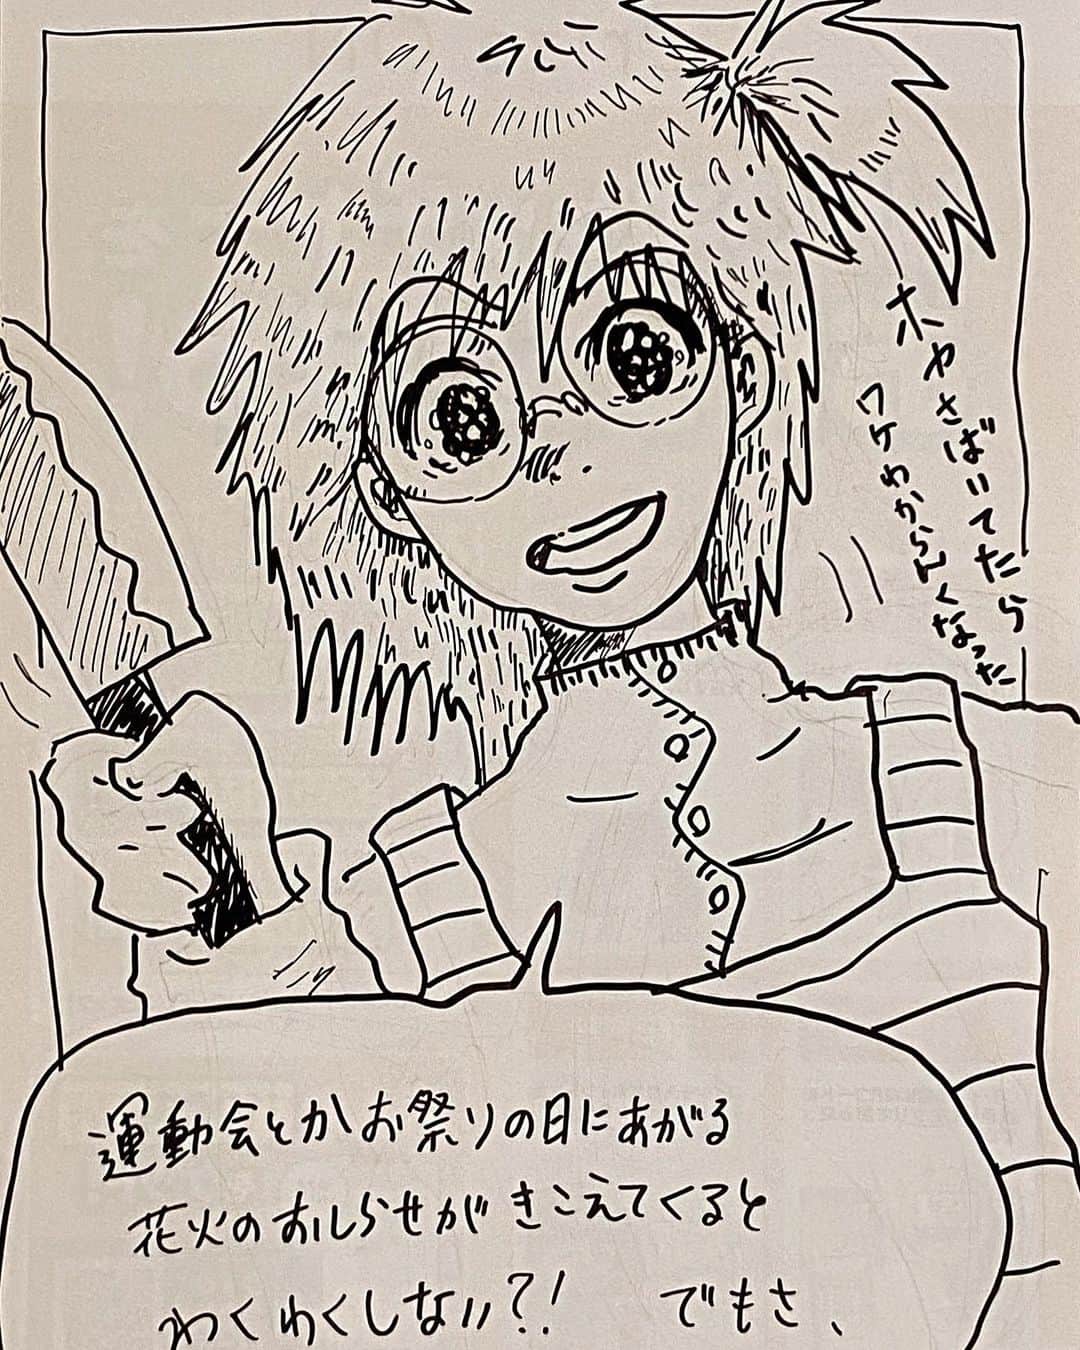 ホヤさばいてたら
ワケわからんくなった
運動会とかお祭りの日にあがる
花火のおしらせがきこえてくると
わくわくしない?!　でもさ、